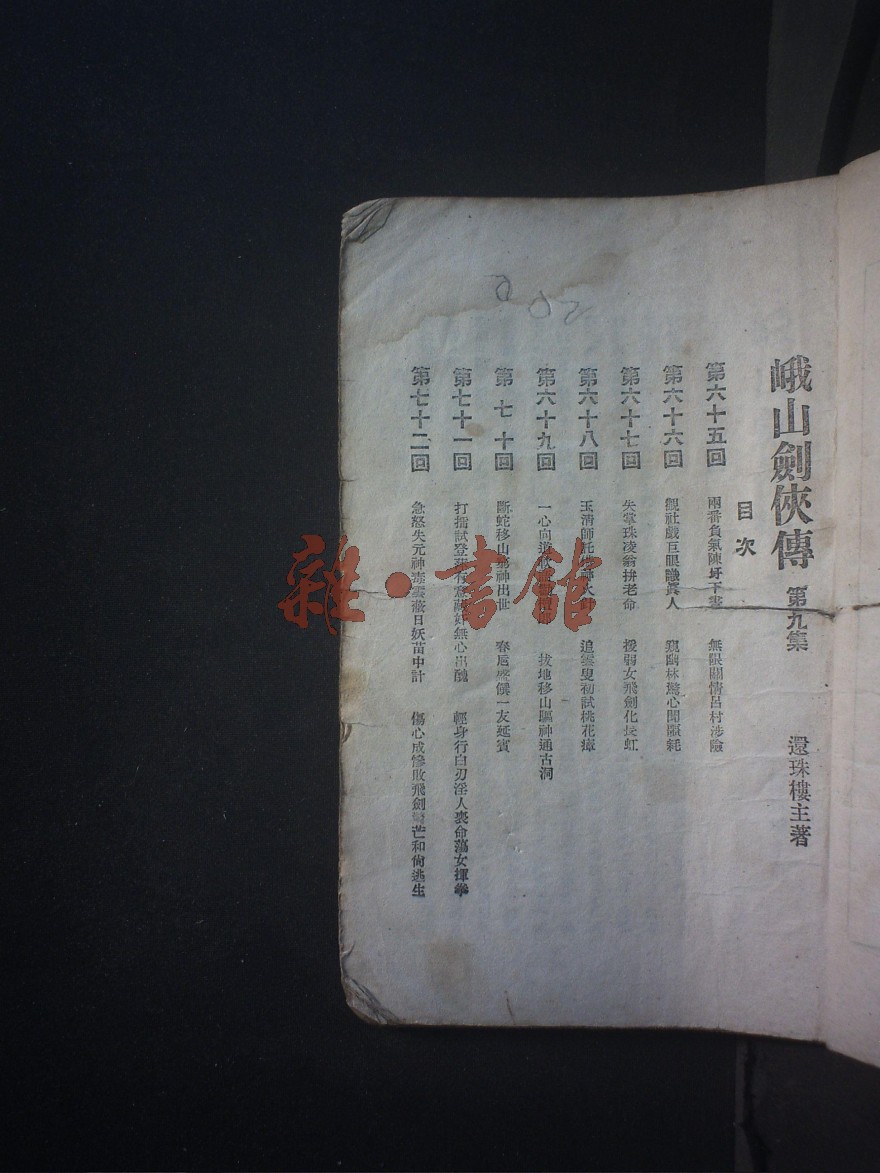 峨山劍俠傳 第九集 還珠樓主著
目次
第六十五回 兩番負氣陳圩下書 無限關情呂村涉險
第六十六回 觀社戲巨眼識真人 窺幽林驚心聞噩耗
第六十七回 失掌珠凌翁拚老命 援弱女飛劍化長虹
第六十八回 玉清師 追雲叟初試桃花瘴
第六十九回 一心向道 拔地移山驅神通古洞
第七十回 斷蛇移山 神出世 春卮盛饌一友延賓
第七十一回 打擂試登 無心出醜 輕身行白刃淫人喪命蕩女揮拳
第七十二回 急怒失元神毒雲蔽日妖苗中計 傷心成慘敗飛劍 芒和尚逃生
雜·書館